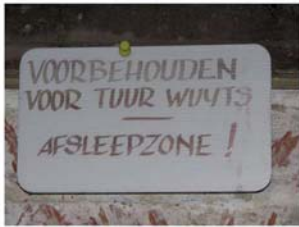 VOORBEHOUDEN
VOOR TUUR WUYTS
AFSLEEPZONE !